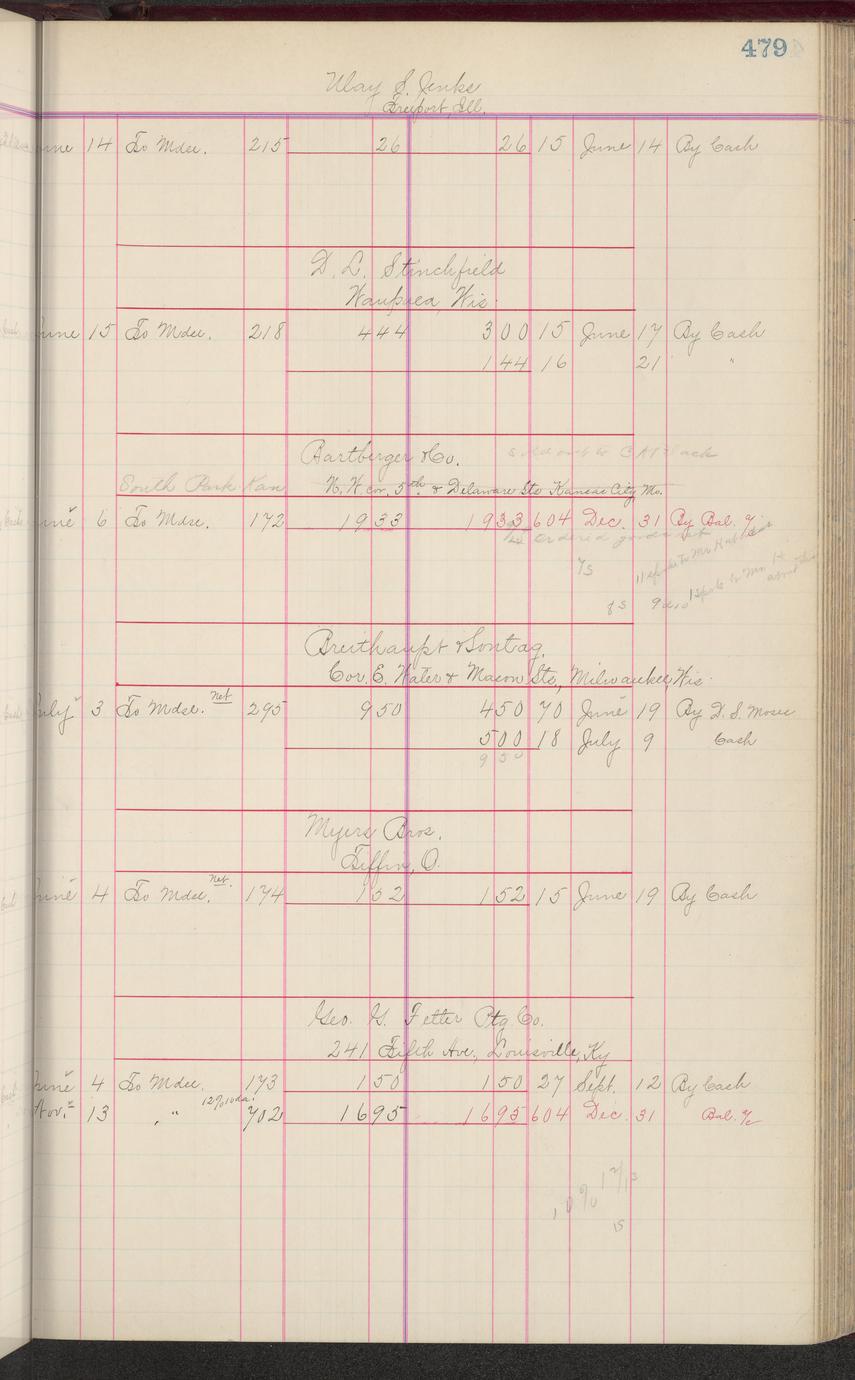 479
May S. Jenks
Freeport, Ill.
June 14 To Mdse. 215 26 26 15 June 14 By Cash
D. L. Stinchfield
Waupaca, Wis.
June 15 To Mdse. 218 444 300 15 June 17 By Cash
144 16 21 "
Bartberger & Co. sold out to
South Park Kan N. W. cor. 5th & Delaware Sts Kansas City Mo.
June 6 To Mdse. 172 1933 1933 604 Dec. 31 By Bal. %
ordered goods
Breithaupt & Sontag.
Cor. E. Water & Mason Sts, Milwaukee, Wis.
July 3 To Mdse. net 295 950 450 70 June 19 By D. S. Moses
500 18 July 9 Cash
950
Myers Bros.
Tiffin, O.
June 4 To Mdse. net. 174 152 152 15 June 19 By Cash
Geo. G. Fetter Ptg Co.
241 Fifth Ave., Louisville, Ky
June 4 To Mdse. 173 150 150 27 Sept. 12 By Cash
Nov. 13 " 702 1695 1695 604 Dec. 31 Bal. %